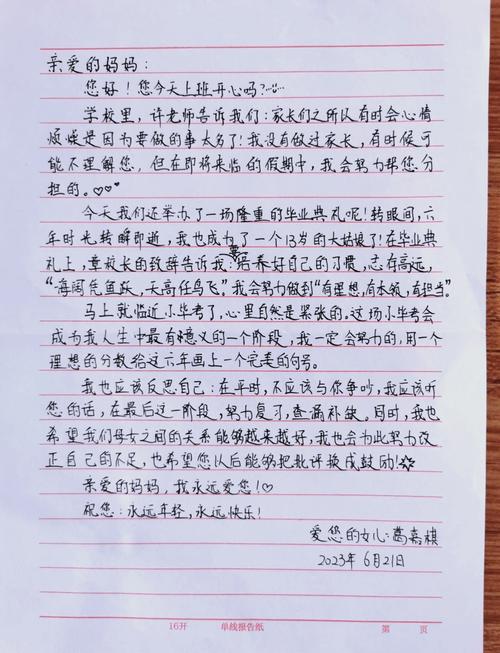 亲爱的妈妈:
您好!您今天上班开心吗?
学校里,许老师告诉我们:家长们之所以有时会心情
烦燥是因为要做的事太多了!我没有做过家长,有时候可
能不理解您,但在即将来临的假期中,我会努力帮您分
担的。♡♡♡
今天我们还举办了一场隆重的毕业典礼呢!转眼间,六
年时光转瞬即逝,我也成为了一个13岁的大姑娘了!在毕业典
礼上,章校长的致辞告诉我:要培养好自己的习惯,志存高远,
“海阔凭鱼跃,天高任鸟飞”。我会努力做到“有理想,有本领,有担当”。
马上就临近小毕考了,心里自然是紧张的。这场小毕考会
成为我人生中最有意义的一个阶段,我一定会努力的,用一个
理想的分数给这六年画上一个完美的句号。
我也应该反思自己:在平时,不应该与你争吵,我应该听
您的话,在最后这一阶段,努力复习,查漏补缺,同时,我也
希望我们母女之间的关系能够越来越好,我也会为此努力改
正自己的不足,也希望您以后能够把批评换成鼓励!☆
亲爱的妈妈,我永远爱您!♡
祝您:永远年轻,永远快乐!
爱您的女儿:葛嘉棋
2023年 6月21日
16开 单线报告纸 第 页